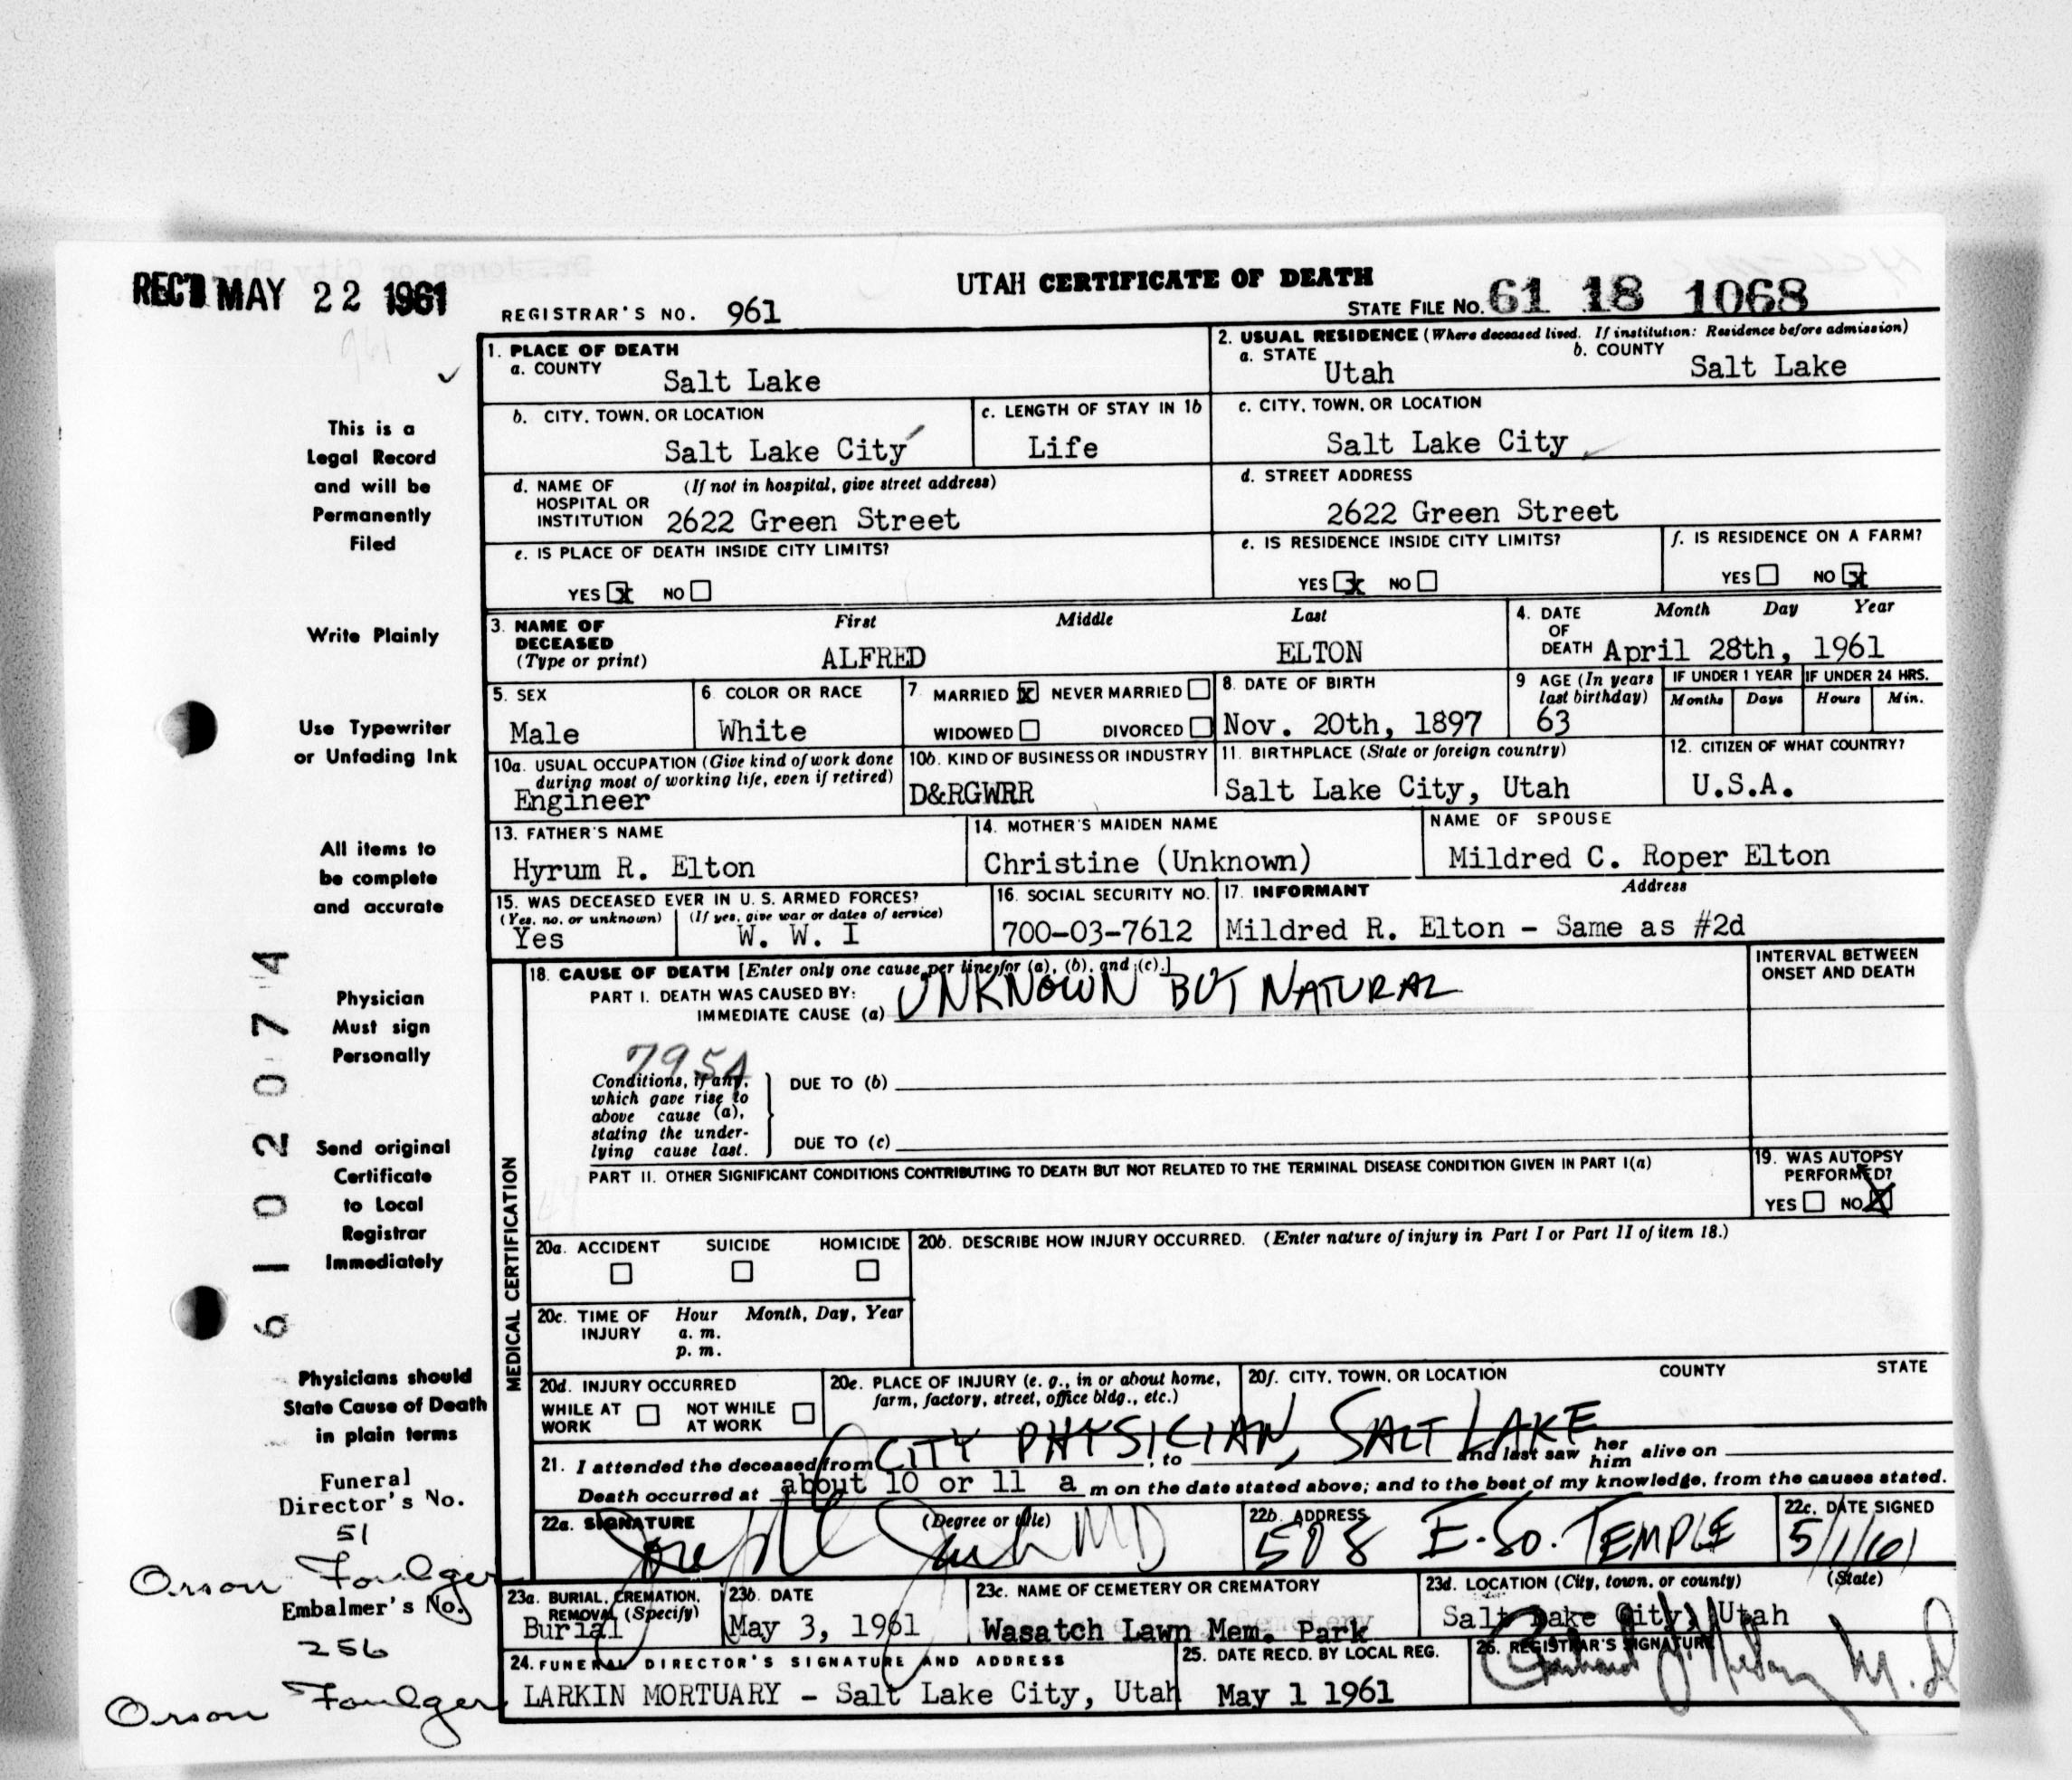 REC'D MAY 22 1961
UTAH CERTIFICATE OF DEATH
REGISTRAR'S NO. 961
STATE FILE NO. 61 18 1068
1. PLACE OF DEATH
a. COUNTY
Salt Lake
2. USUAL RESIDENCE (Where deceased lived. If institution: Residence before admission)
a. STATE
Utah
b. COUNTY
Salt Lake
b. CITY, TOWN, OR LOCATION
Salt Lake City
c. LENGTH OF STAY IN 1b
Life
c. CITY, TOWN, OR LOCATION
Salt Lake City
d. NAME OF HOSPITAL OR INSTITUTION
(If not in hospital, give street address)
2622 Green Street
d. STREET ADDRESS
2622 Green Street
e. IS PLACE OF DEATH INSIDE CITY LIMITS?
YES x NO
e. IS RESIDENCE INSIDE CITY LIMITS?
YES x NO
f. IS RESIDENCE ON A FARM?
YES NO x
3. NAME OF DECEASED
(Type or print)
First Middle Last
ALFRED ELTON
4. DATE OF DEATH
Month Day Year
April 28th, 1961
5. SEX
Male
6 COLOR OR RACE
White
7 MARRIED x NEVER MARRIED
WIDOWED DIVORCED
8. DATE OF BIRTH
Nov. 20th, 1897
9 AGE (In years last birthday)
63
IF UNDER 1 YEAR
Months Days
IF UNDER 24 HRS.
Hours Min.
10a. USUAL OCCUPATION (Give kind of work done during most of working life, even if retired)
Engineer
10b. KIND OF BUSINESS OR INDUSTRY
D&RGWRR
11. BIRTHPLACE (State or foreign country)
Salt Lake City, Utah
12. CITIZEN OF WHAT COUNTRY?
U.S.A.
13. FATHER'S NAME
Hyrum R. Elton
14. MOTHER'S MAIDEN NAME
Christine (Unknown)
NAME OF SPOUSE
Mildred C. Roper Elton
15. WAS DECEASED EVER IN U. S. ARMED FORCES?
(Yes, no. or unknown) (If yes, give war or dates of service)
Yes W. W. I
16. SOCIAL SECURITY NO.
700-03-7612
17. INFORMANT Address
Mildred R. Elton - Same as #2d
MEDICAL CERTIFICATION
18. CAUSE OF DEATH [Enter only one cause per line for (a), (b), and (c).]
PART I. DEATH WAS CAUSED BY:
IMMEDIATE CAUSE (a) UNKNOWN BUT NATURAL
INTERVAL BETWEEN ONSET AND DEATH
795A
Conditions, if any, which gave rise to above cause (a), stating the underlying cause last.
DUE TO (b)
DUE TO (c)
PART II. OTHER SIGNIFICANT CONDITIONS CONTRIBUTING TO DEATH BUT NOT RELATED TO THE TERMINAL DISEASE CONDITION GIVEN IN PART I(a)
19. WAS AUTOPSY PERFORMED?
YES NO X
20a. ACCIDENT SUICIDE HOMICIDE
20b. DESCRIBE HOW INJURY OCCURRED. (Enter nature of injury in Part I or Part II of item 18.)
20c. TIME OF INJURY
Hour Month, Day, Year
a. m.
p. m.
20d. INJURY OCCURRED
WHILE AT WORK NOT WHILE AT WORK
20e. PLACE OF INJURY (e. g., in or about home, farm, factory, street, office bldg., etc.)
20f. CITY, TOWN, OR LOCATION COUNTY STATE
CITY PHYSICIAN, SALT LAKE
21. I attended the deceased from , to and last saw her him alive on
Death occurred at about 10 or 11 a m on the date stated above; and to the best of my knowledge, from the causes stated.
22a. SIGNATURE (Degree or title)
MD
22b. ADDRESS
508 E. SO. TEMPLE
22c. DATE SIGNED
5/1/61
23a. BURIAL, CREMATION, REMOVAL (Specify)
Burial
23b. DATE
May 3, 1961
23c. NAME OF CEMETERY OR CREMATORY
Wasatch Lawn Mem. Park
23d. LOCATION (City, town, or county) (State)
Salt Lake City, Utah
24. FUNERAL DIRECTOR'S SIGNATURE AND ADDRESS
LARKIN MORTUARY - Salt Lake City, Utah
25. DATE RECD. BY LOCAL REG.
May 1 1961
26. REGISTRAR'S SIGNATURE
M.D
This is a
Legal Record
and will be
Permanently
Filed
Write Plainly
Use Typewriter
or Unfading Ink
All items to
be complete
and accurate
Physician
Must sign
Personally
Send original
Certificate
to Local
Registrar
Immediately
Physicians should
State Cause of Death
in plain terms
Funeral
Director's No.
51
Orson Foulger
Embalmer's No.
256
Orson Foulger
6102074